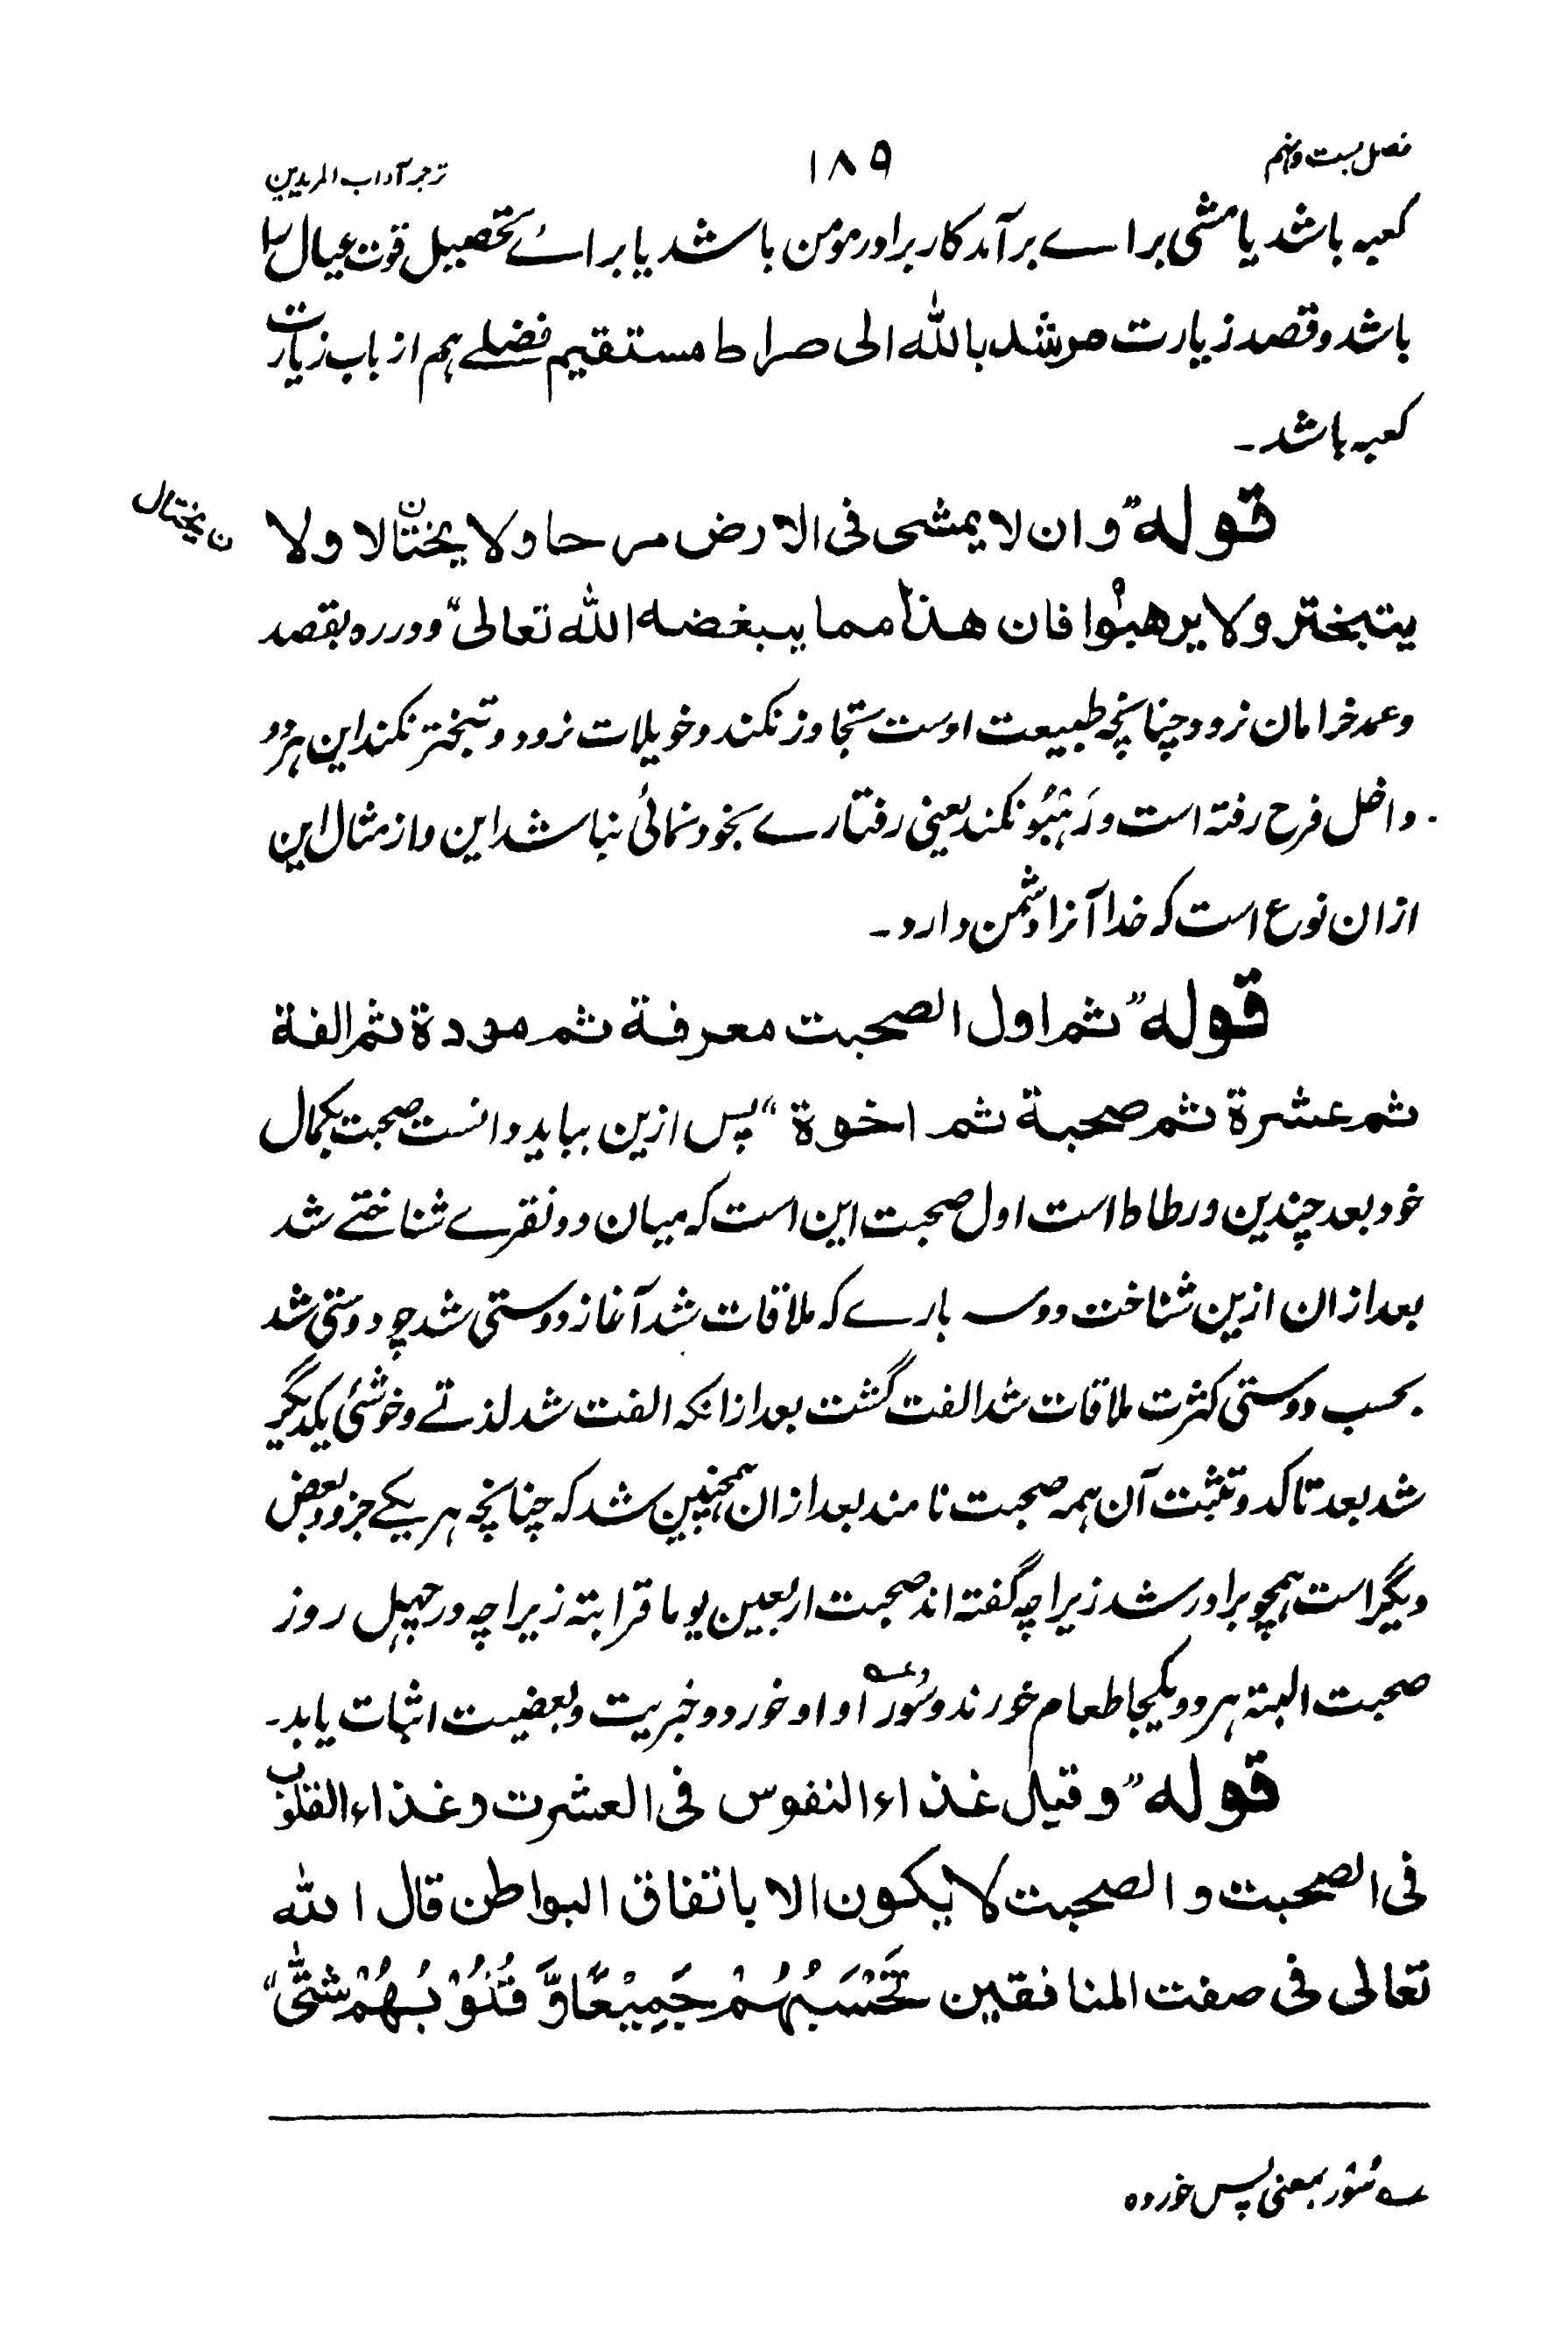 فصل بست و نہم ۱۸۹ ترجمہ آداب المریدین
کعبہ باشد یا مشی براے برآمد کار براور مومن باشد یا برائے تحصیل قوت عیال را
باشد و قصد زیارت مرشد باللہ الی صراط مستقیم فضلے ہم از باب زیارت
کعبہ باشد۔
قولہ "و ان لا یمشی فی الارض مرحا ولا یختالا ولا
ن یختال
یتبختر ولا یرھبوا فان ھذا مما یبغضہ اللہ تعالی" و در رہ بقصد
و عمد خرامان نرود چنانچہ طبیعت اوست تجاوز نکند و خویلات نرود و تبختر نکند این ہردو
داخل فرح رفتہ است و رَہْبُو نکند یعنی رفتارے بخود نمائی نباشد این و از مثال این
ازان نوع است کہ خدا آنرا دشمن دارد۔
قولہ "ثم اول الصحبت معرفة ثم مودة ثم الفة
ثم عشرة ثم صحبة ثم اخوة" پس ازین بباید دانست صحبت بکمال
خود بعد چندین ورطاط است اول صحبت این است کہ میان دو نفرے شناختے شد
بعد ازان ازین شناخت دوسہ بارے کہ ملاقات شد آغاز دوستی شد چو دوستی شد
بحسب دوستی کثرت ملاقات شد الفت گشت بعد ازانکہ الفت شد لذتے و خوشئی یکدیگر
شد بعد تاکد و تثبت آن ہمہ صحبت نامند بعد ازان ہمچنین شد کہ چنانچہ ہر یکے جزو بعض
دیگر است ہمچو برادر شد زیراچہ گفتہ اند صحبت اربعین یوما قرابتہ زیراچہ در چہل روز
صحبت البتہ ہر دو یکجا طعام خورند و سُور؏ او او خورد و خبریت و بعضیت اثبات یابد۔
قولہ "و قیل غذاء النفوس فی العشرت و غذاء القلوب
فی الصحبت و الصحبت لا یکون الا باتفاق البواطن قال اللہ
تعالی فی صفت المنافقین تَحْسَبُهُمْ جَمِیْعًا وَّ قُلُوْبُهُمْ شَتّٰی"
؏ سُوْر بمعنی پس خوردہ